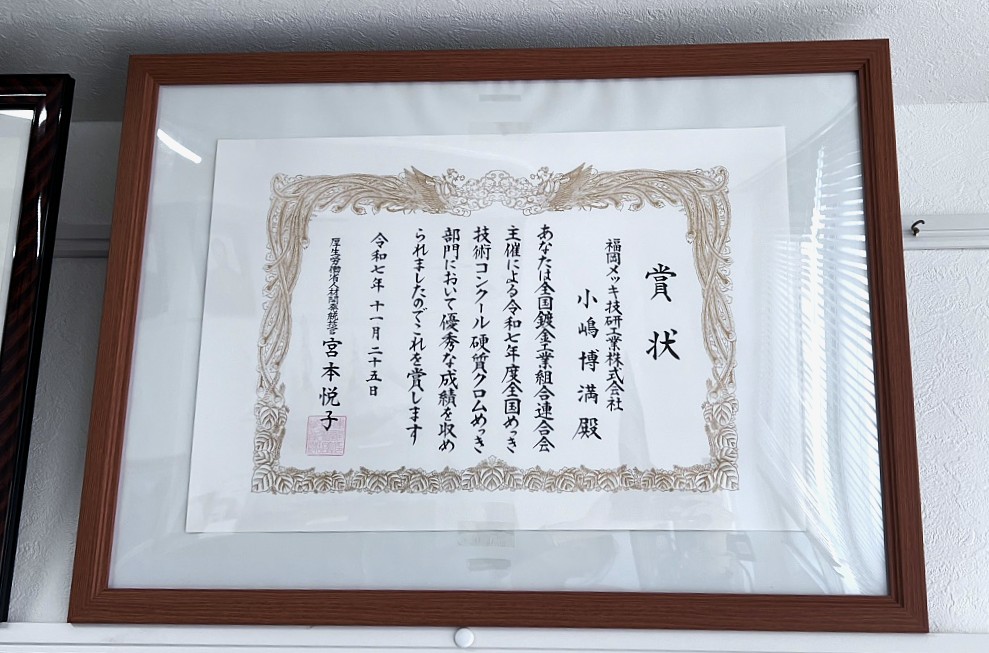 賞状
福岡メッキ技研工業株式会社
小嶋博満殿
あなたは全国鍍金工業組合連合会
主催による令和七年度全国めっき
技術コンクール硬質クロムめっき
部門において優秀な成績を収め
られましたのでこれを賞します
令和七年十一月二十五日
厚生労働省人材開発統括官 宮本悦子